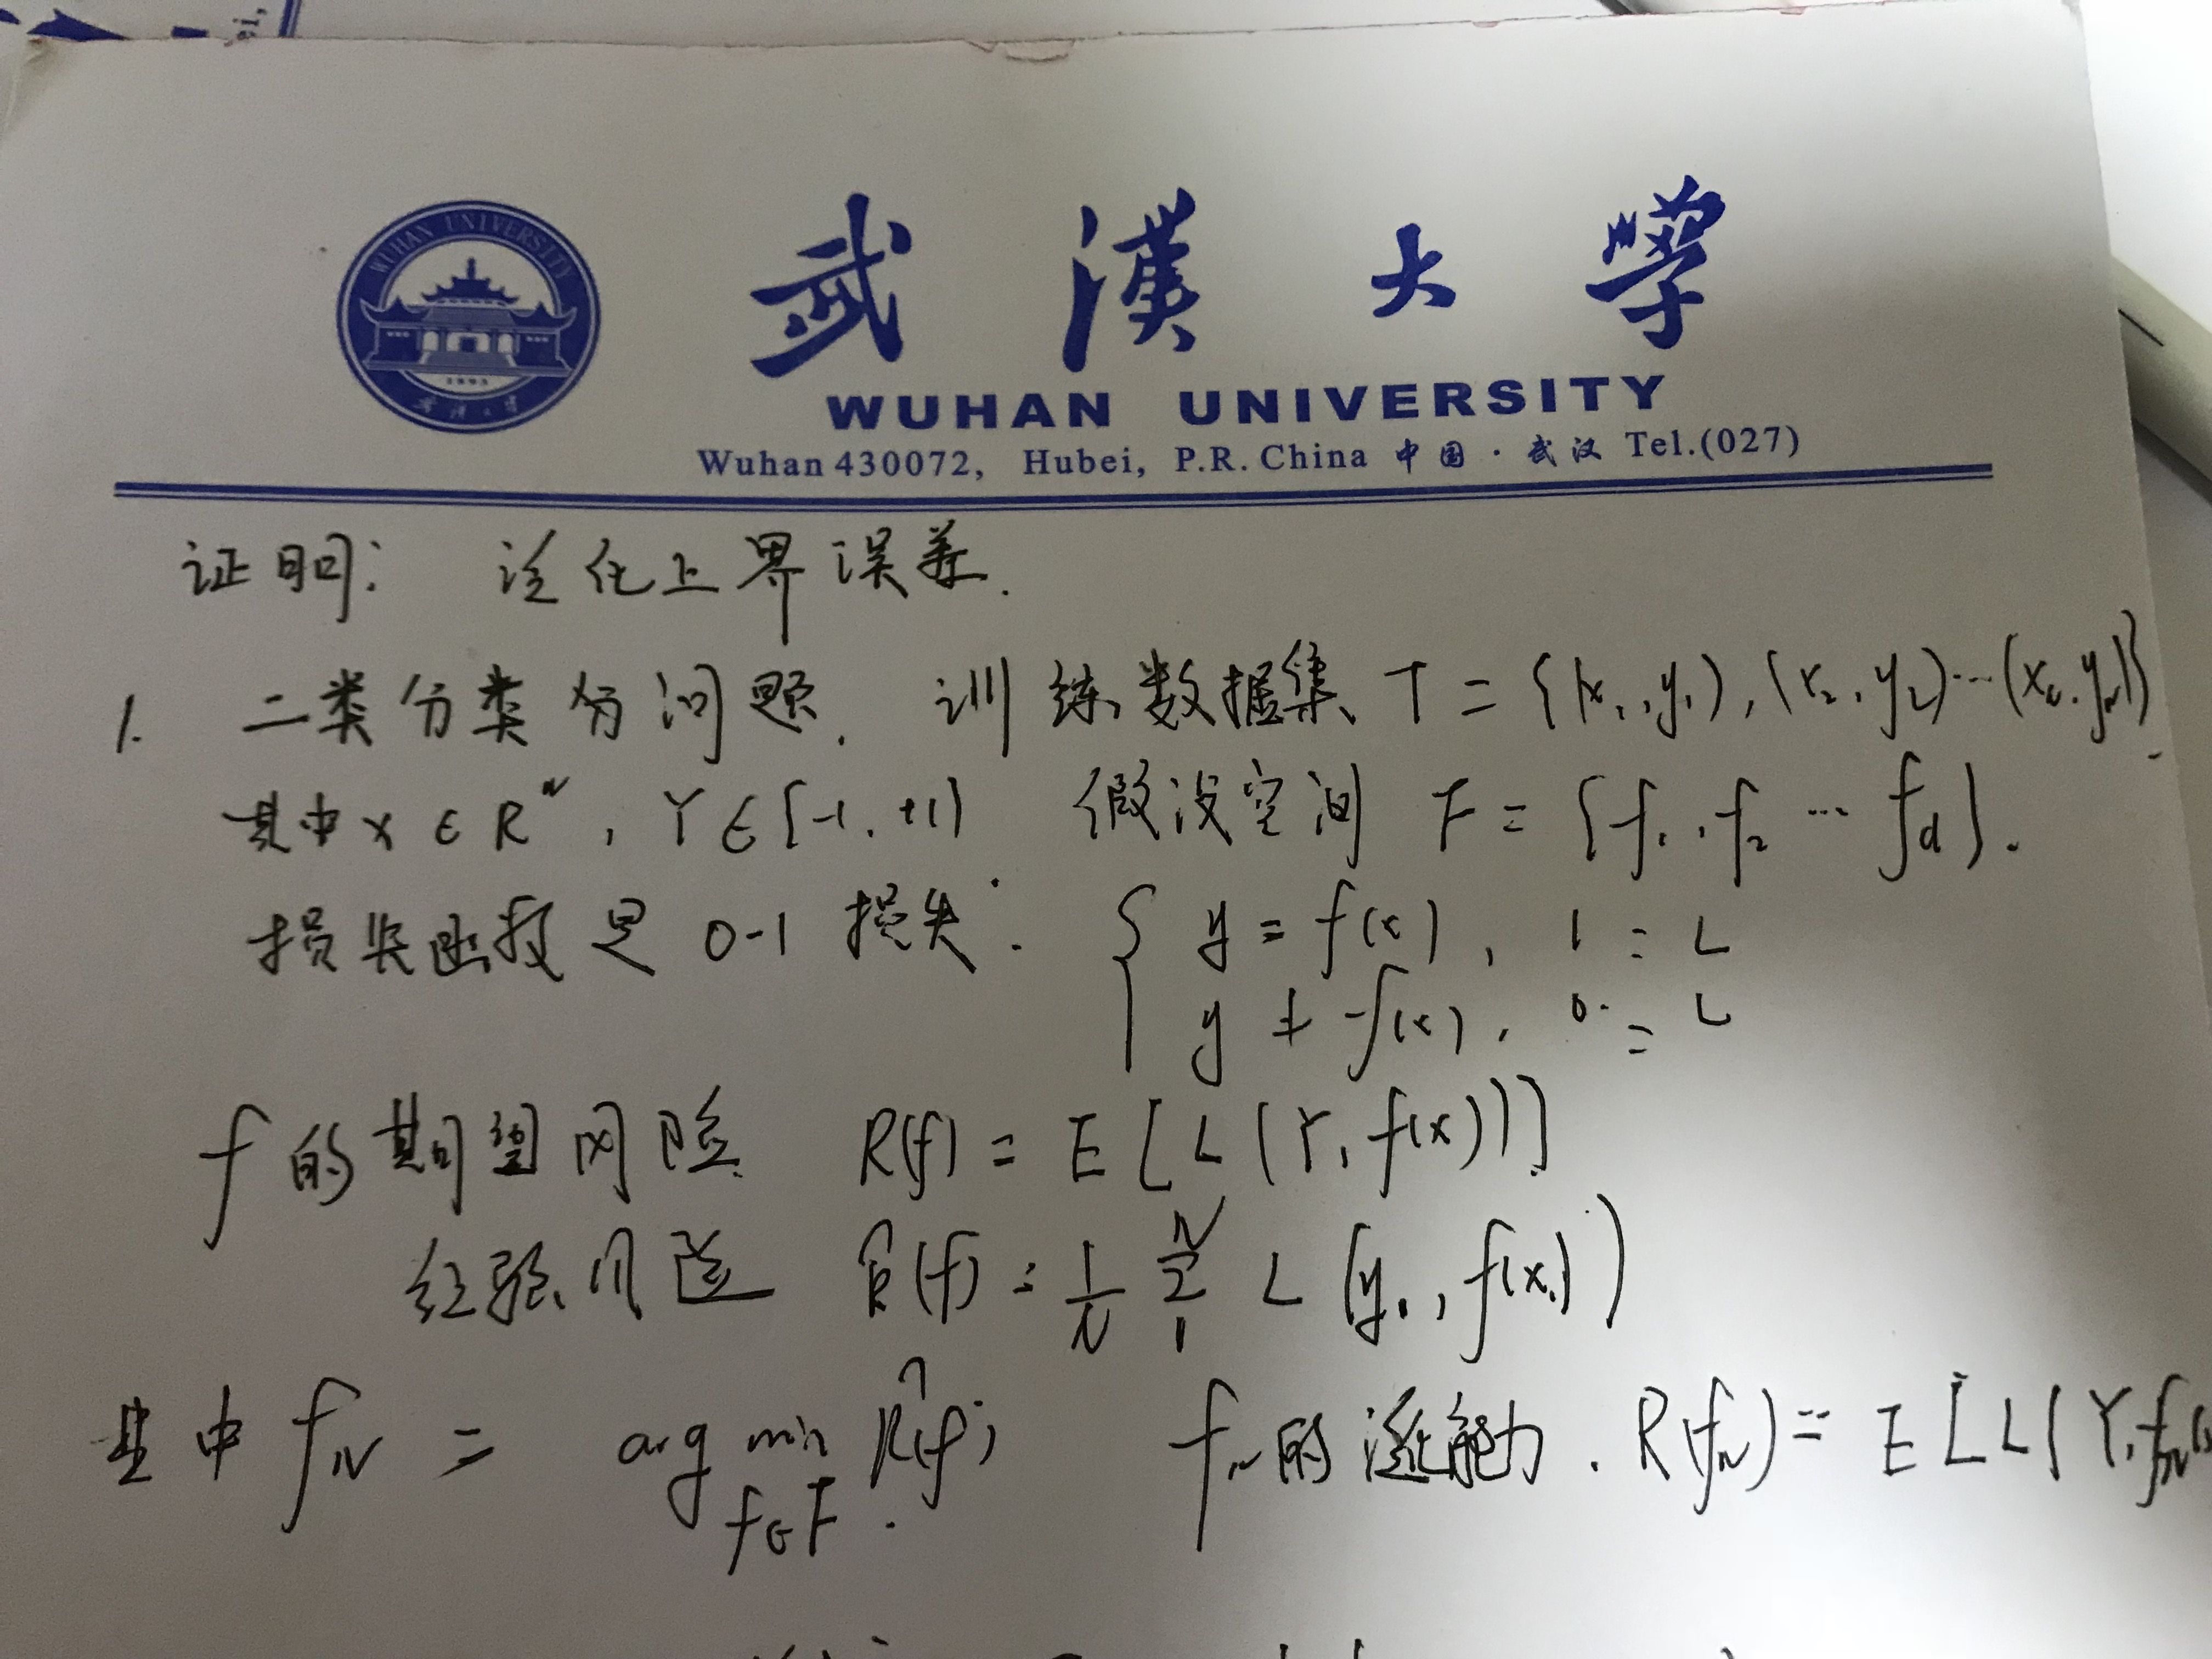 WUHAN UNIVERSITY
武漢大學
WUHAN UNIVERSITY
Wuhan 430072, Hubei, P.R. China 中国·武汉 Tel.(027)
证明: 泛化上界误差.
1. 二类分类分问题. 训练数据集 T = {(x₁,y₁),(x₂,y₂)…(x_N,y_N)}
其中 x ∈ Rⁿ, Y ∈ {-1,+1} 假设空间 F = {f₁,f₂…f_d}.
损失函数是 0-1 损失: { y = f(x), 1 = L
y ≠ f(x), 0 = L
f 的期望风险 R(f) = E[L(Y,f(x))]
经验风险 R̂(f) = 1/N Σ₁ᴺ L(yᵢ,f(xᵢ))
其中 f_N = arg min R̂(f) f_N的泛化能力. R(f_N) = E[L(Y,f_N(
f∈F.